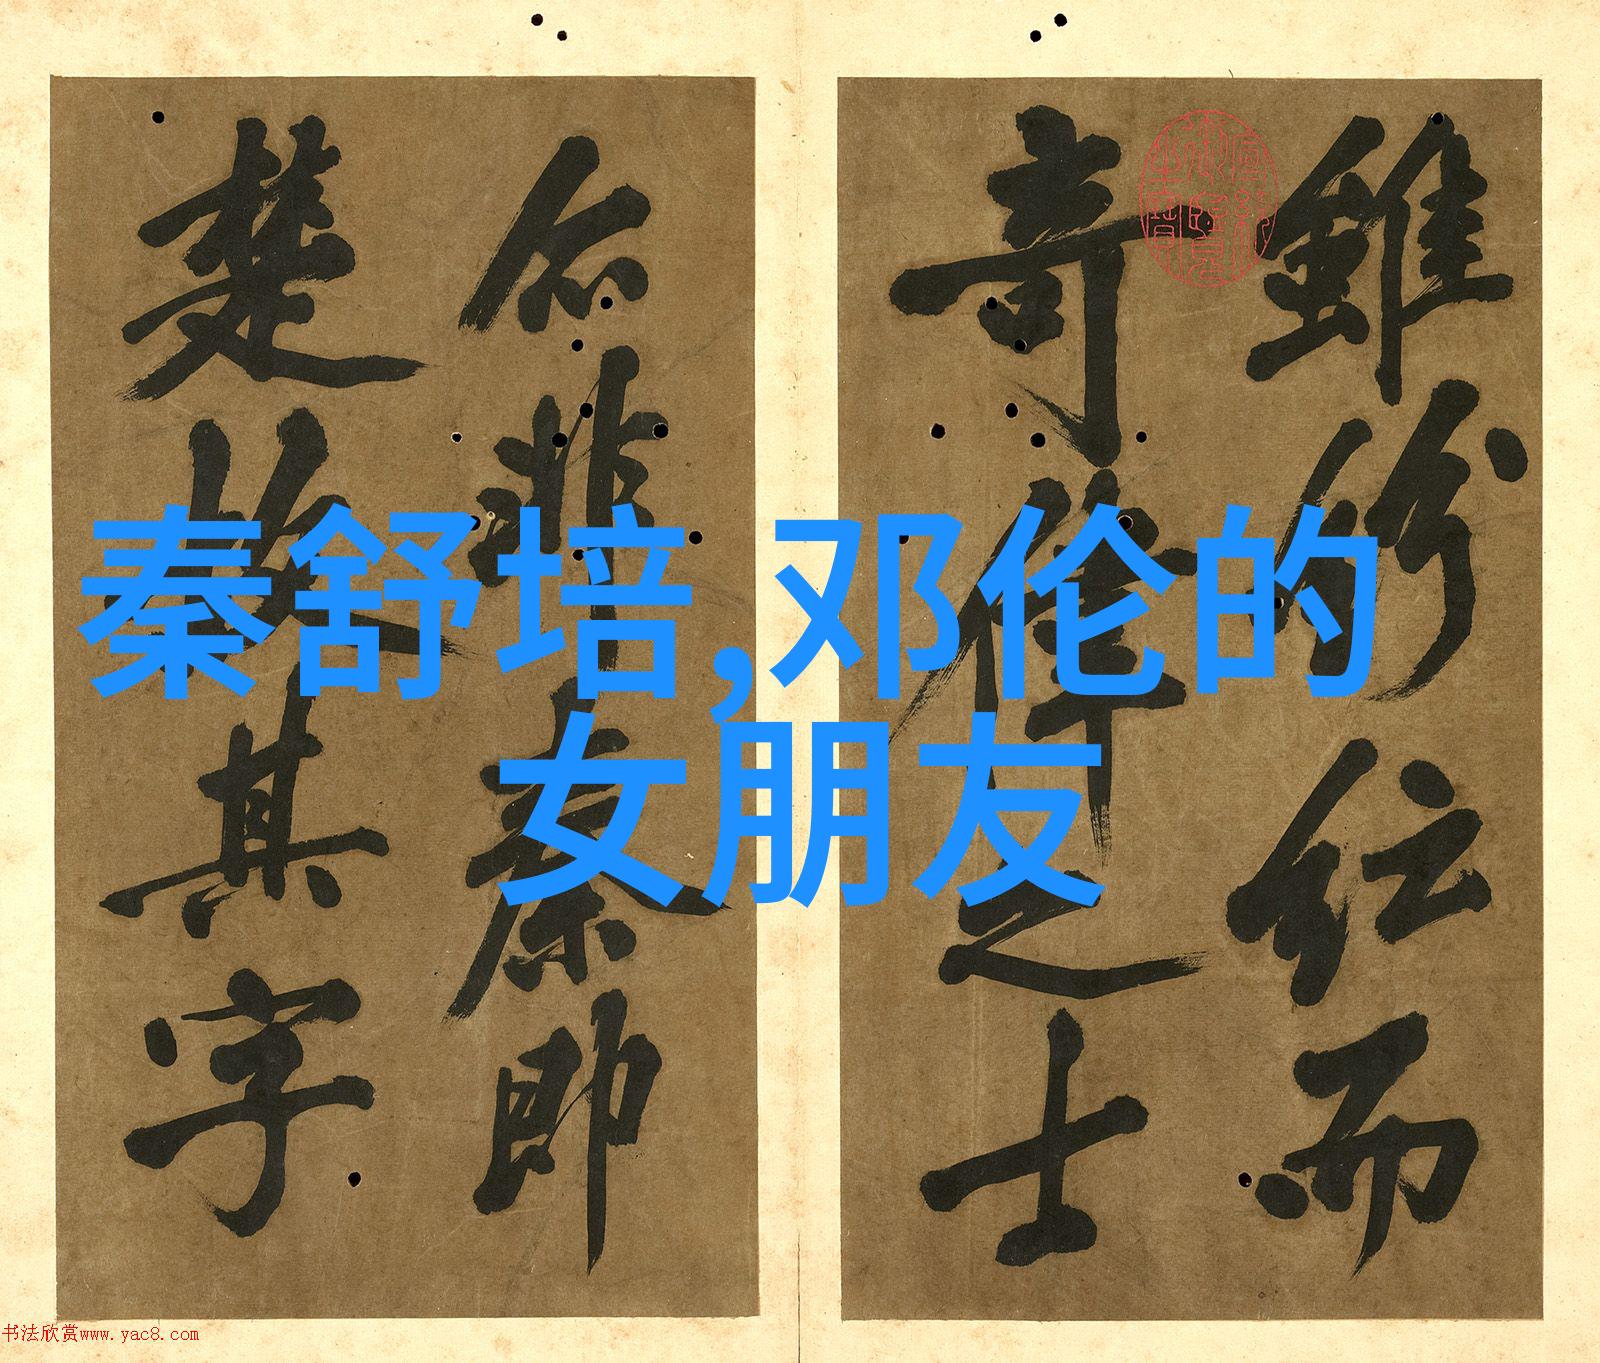 雖紛紜而
奇偉之士
秦舒培,邓伦的
女朋友
佀非秦即
楚故其字
书法欣赏www.yac8.com